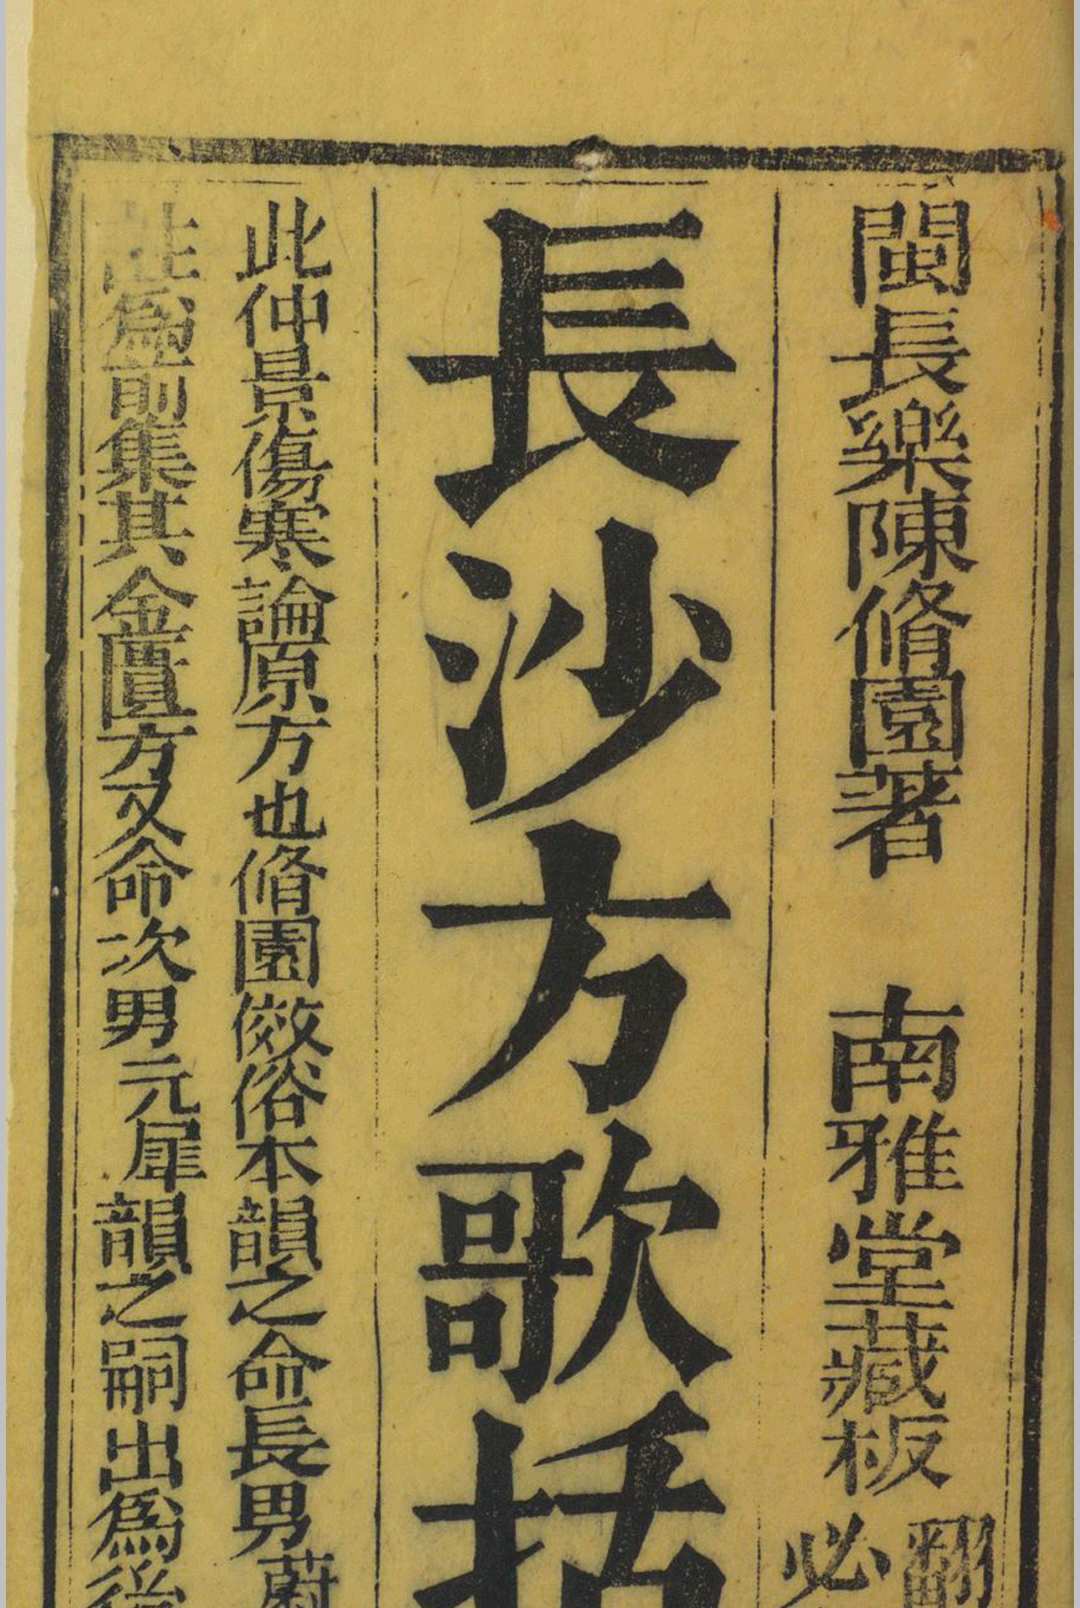 閩長樂陳脩園著 南雅堂藏板
翻
必
長沙方歌括
此仲景傷寒論原方也脩園倣俗本韻之命長男蔚
註爲前集其金匱方又命次男元犀韻之嗣出爲後